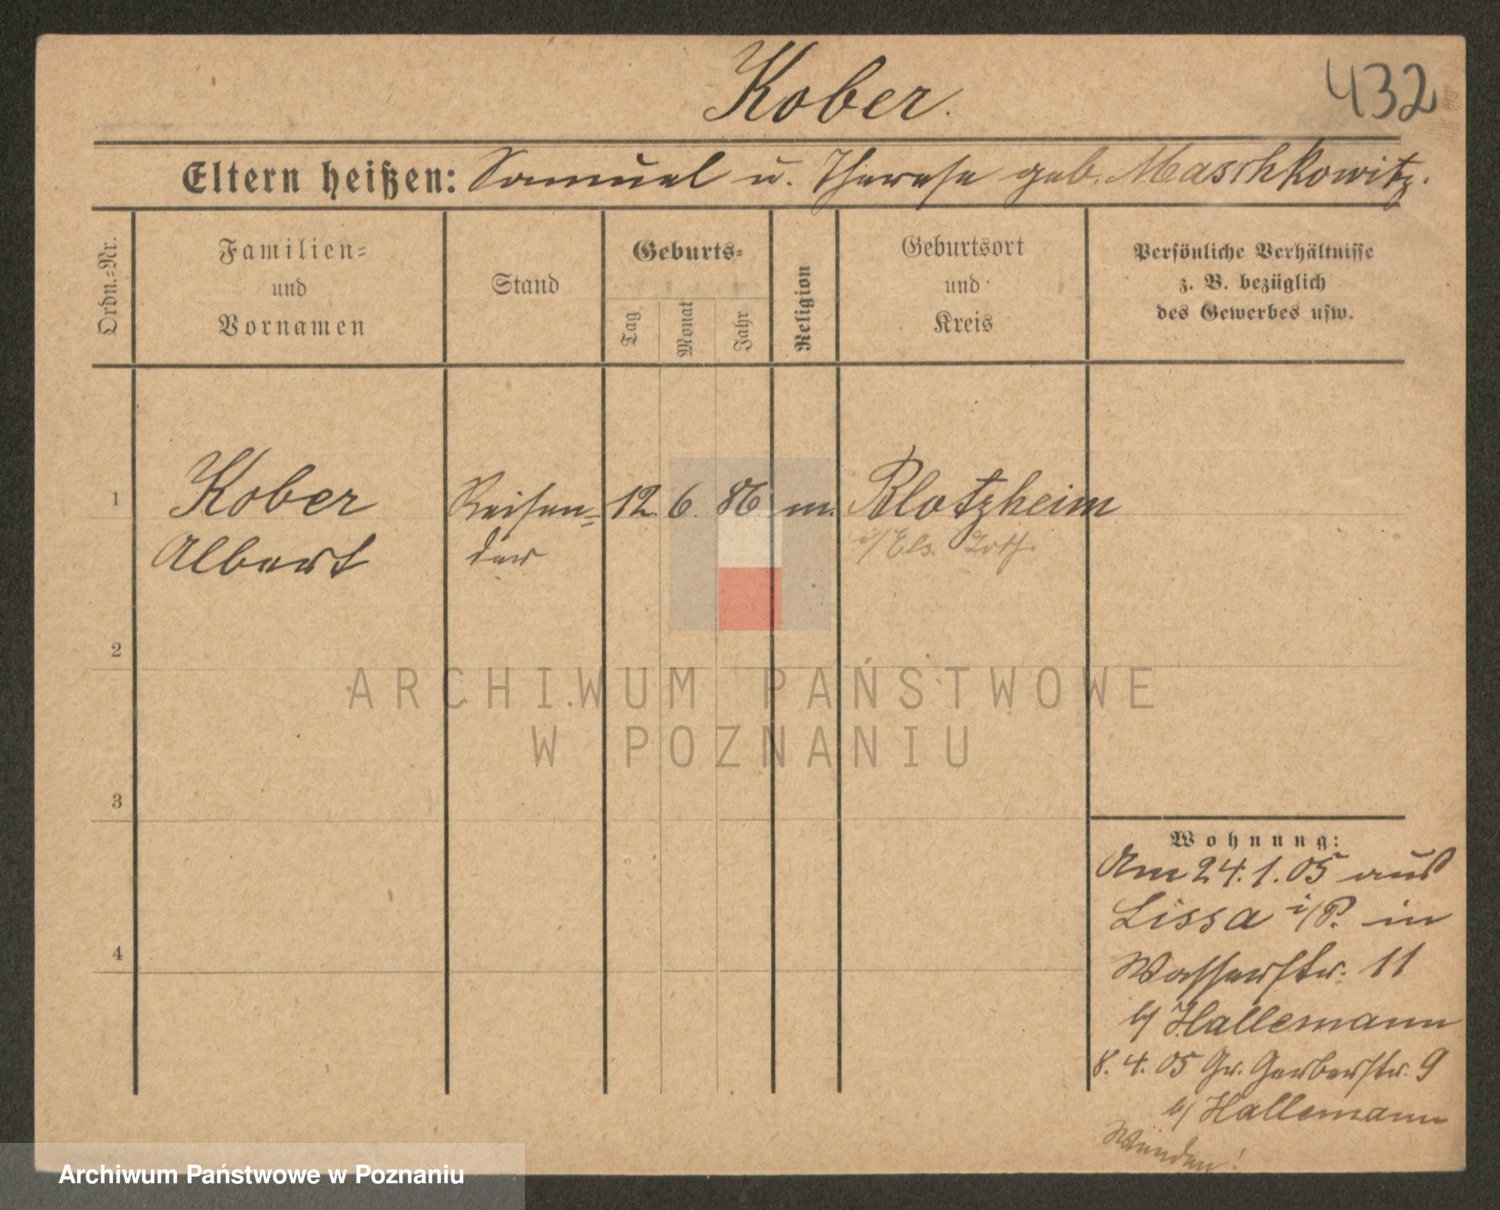 Kober.
432
Eltern heißen: Samuel u. Therese geb. Maschkowitz.
Ordn.-Nr.
Familien- und Vornamen
Stand
Geburts-
Tag
Monat
Jahr
Religion
Geburtsort und Kreis
Persönliche Verhältnisse
z. B. bezüglich
des Gewerbes usw.
1
Kober
Albert
Reisen-
der
12. 6. 86 m. Blotzheim
i/Els. Loth.
2
3
4
Wohnung:
Am 24.1.05 aus
Lissa i/P. in
Wasserstr. 11
b/ Hallemann
8.4.05 Gr. Gerberstr. 9
b/ Hallemann
ARCHIWUM PAŃSTWOWE
W POZNANIU
Archiwum Państwowe w Poznaniu